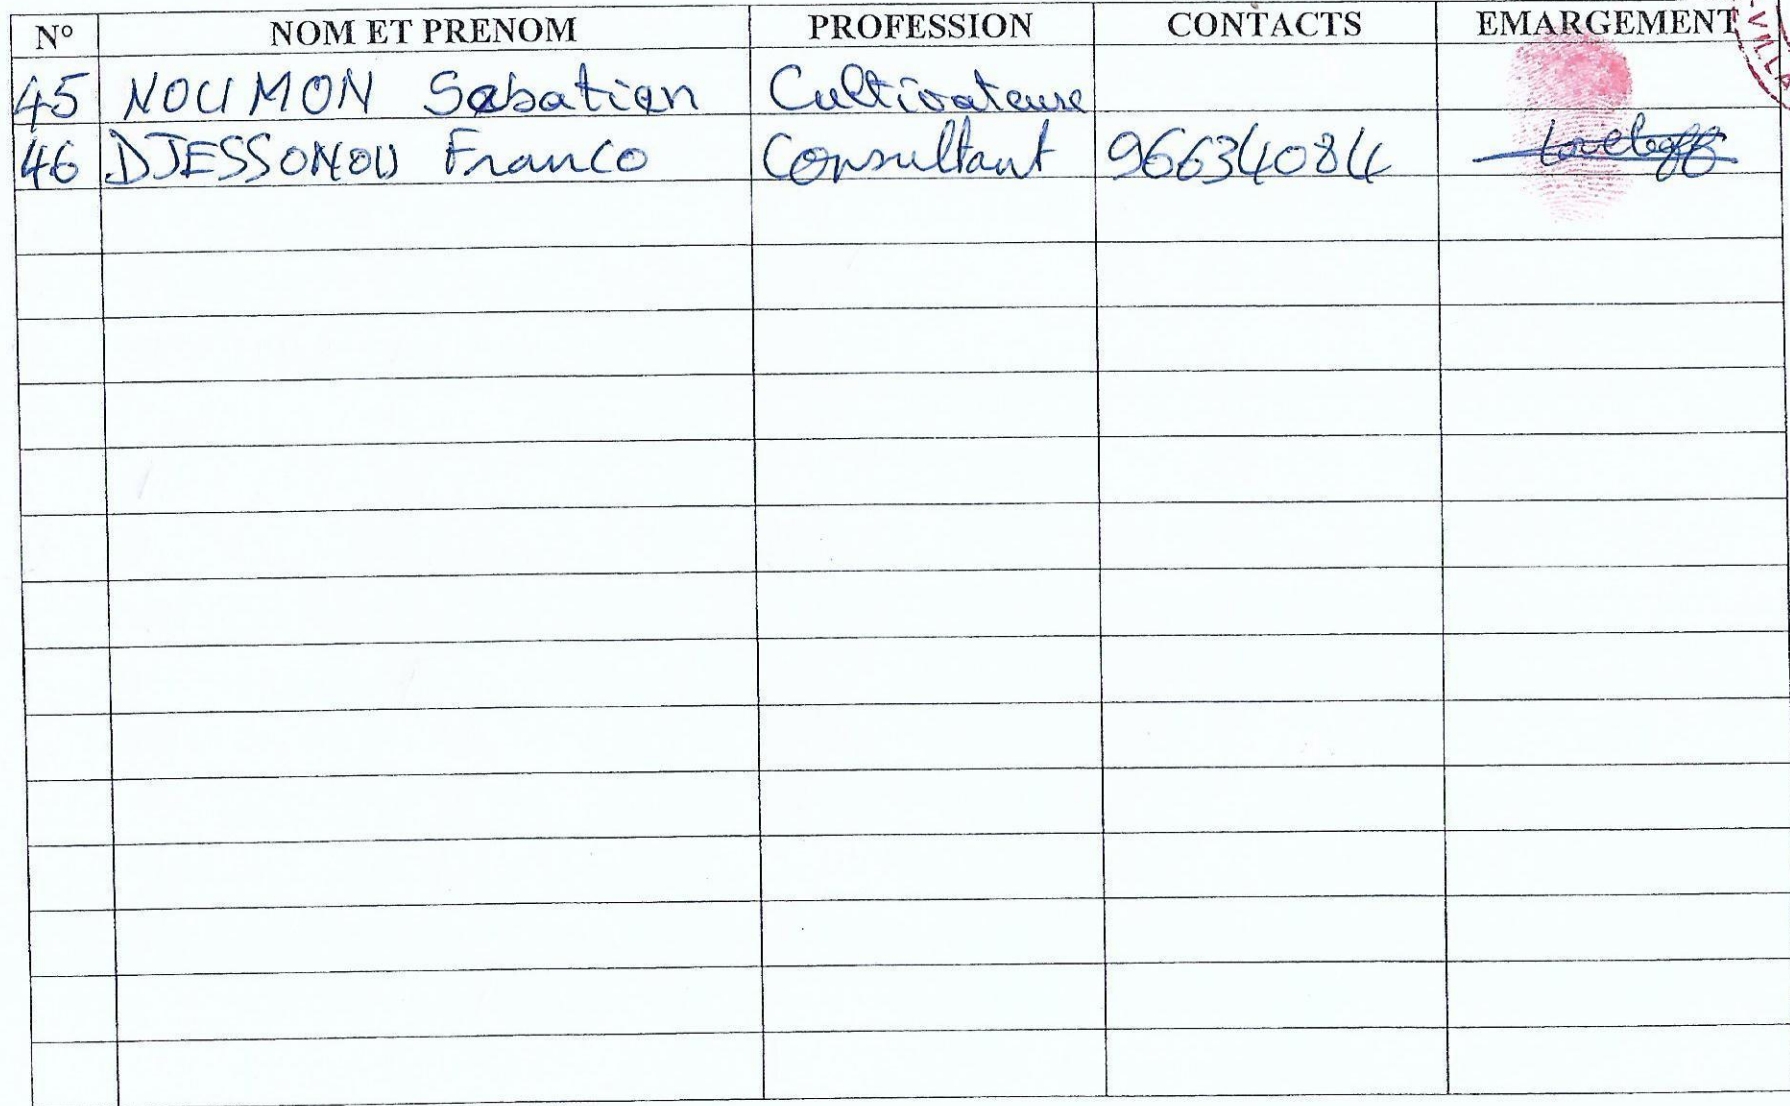 N° NOM ET PRENOM PROFESSION CONTACTS EMARGEMENT
45 NOUMON Sabatian Cultivateuse
46 DJESSONOU Franco Consultant 96634084